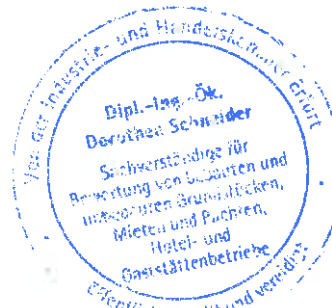 Von der Industrie- und Handelskammer Erfurt
Dipl.-Ing.-Ök.
Dorothea Schneider
Sachverständige für
Bewertung von bebauten und
unbebauten Grundstücken,
Mieten und Pachten,
Hotel- und
Gaststättenbetriebe
Öffentlich und vereidigt